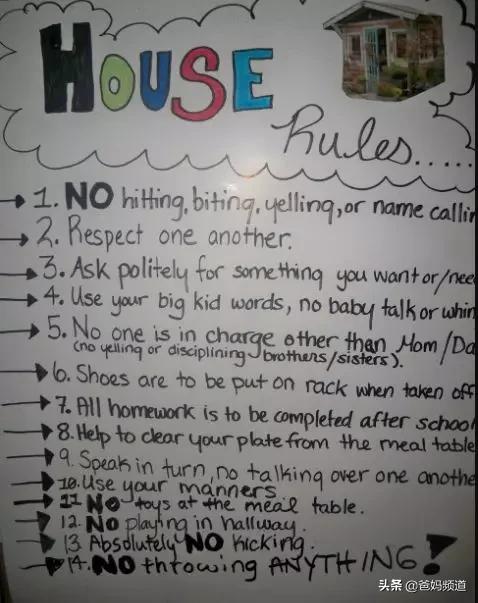 HOUSE
Rules......
1. NO hitting, biting, yelling, or name callin
2. Respect one another.
3. Ask politely for something you want or/nee
4. Use your big kid words, no baby talk or whin
5. No one is in charge other than Mom/Da
(no yelling or disciplining brothers/sisters).
6. Shoes are to be put on rack when taken off
7. All homework is to be completed after school
8. Help to clear your plate from the meal table
9. Speak in turn, no talking over one anothe
10. Use your manners
11. NO toys at the meal table.
12. NO playing in hallway.
13. Absolutely NO kicking.
14. NO throwing ANYTHING!
头条 @爸妈频道